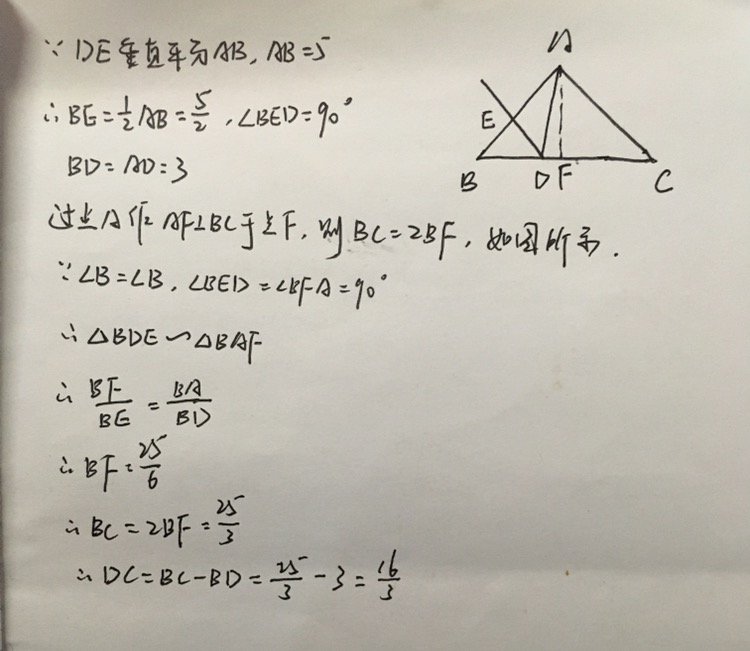 ∵ DE垂直平分AB, AB=5
∴ BE=½AB=5/2, ∠BED=90°
BD=AD=3
过点A作AF⊥BC于点F, 则BC=2BF, 如图所示.
∵ ∠B=∠B, ∠BED=∠BFA=90°
∴ △BDE∽△BAF
∴ BF/BE=BA/BD
∴ BF=25/6
∴ BC=2BF=25/3
∴ DC=BC-BD=25/3-3=16/3
A
E
B D F C